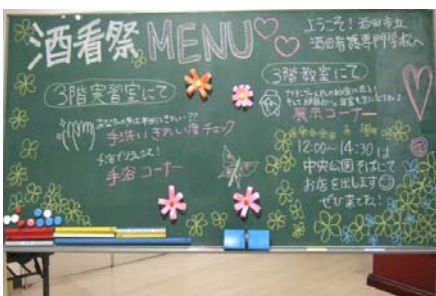 酒看祭 MENU
ようこそ!酒田市立
酒田看護専門学校へ
3階実習室にて
手洗いきれい度チェック
手浴でリラックス!
手浴コーナー
3階教室にて
展示コーナー
12:00~14:30は
中央公園そばにて
お店を出します
ぜひ来てね!